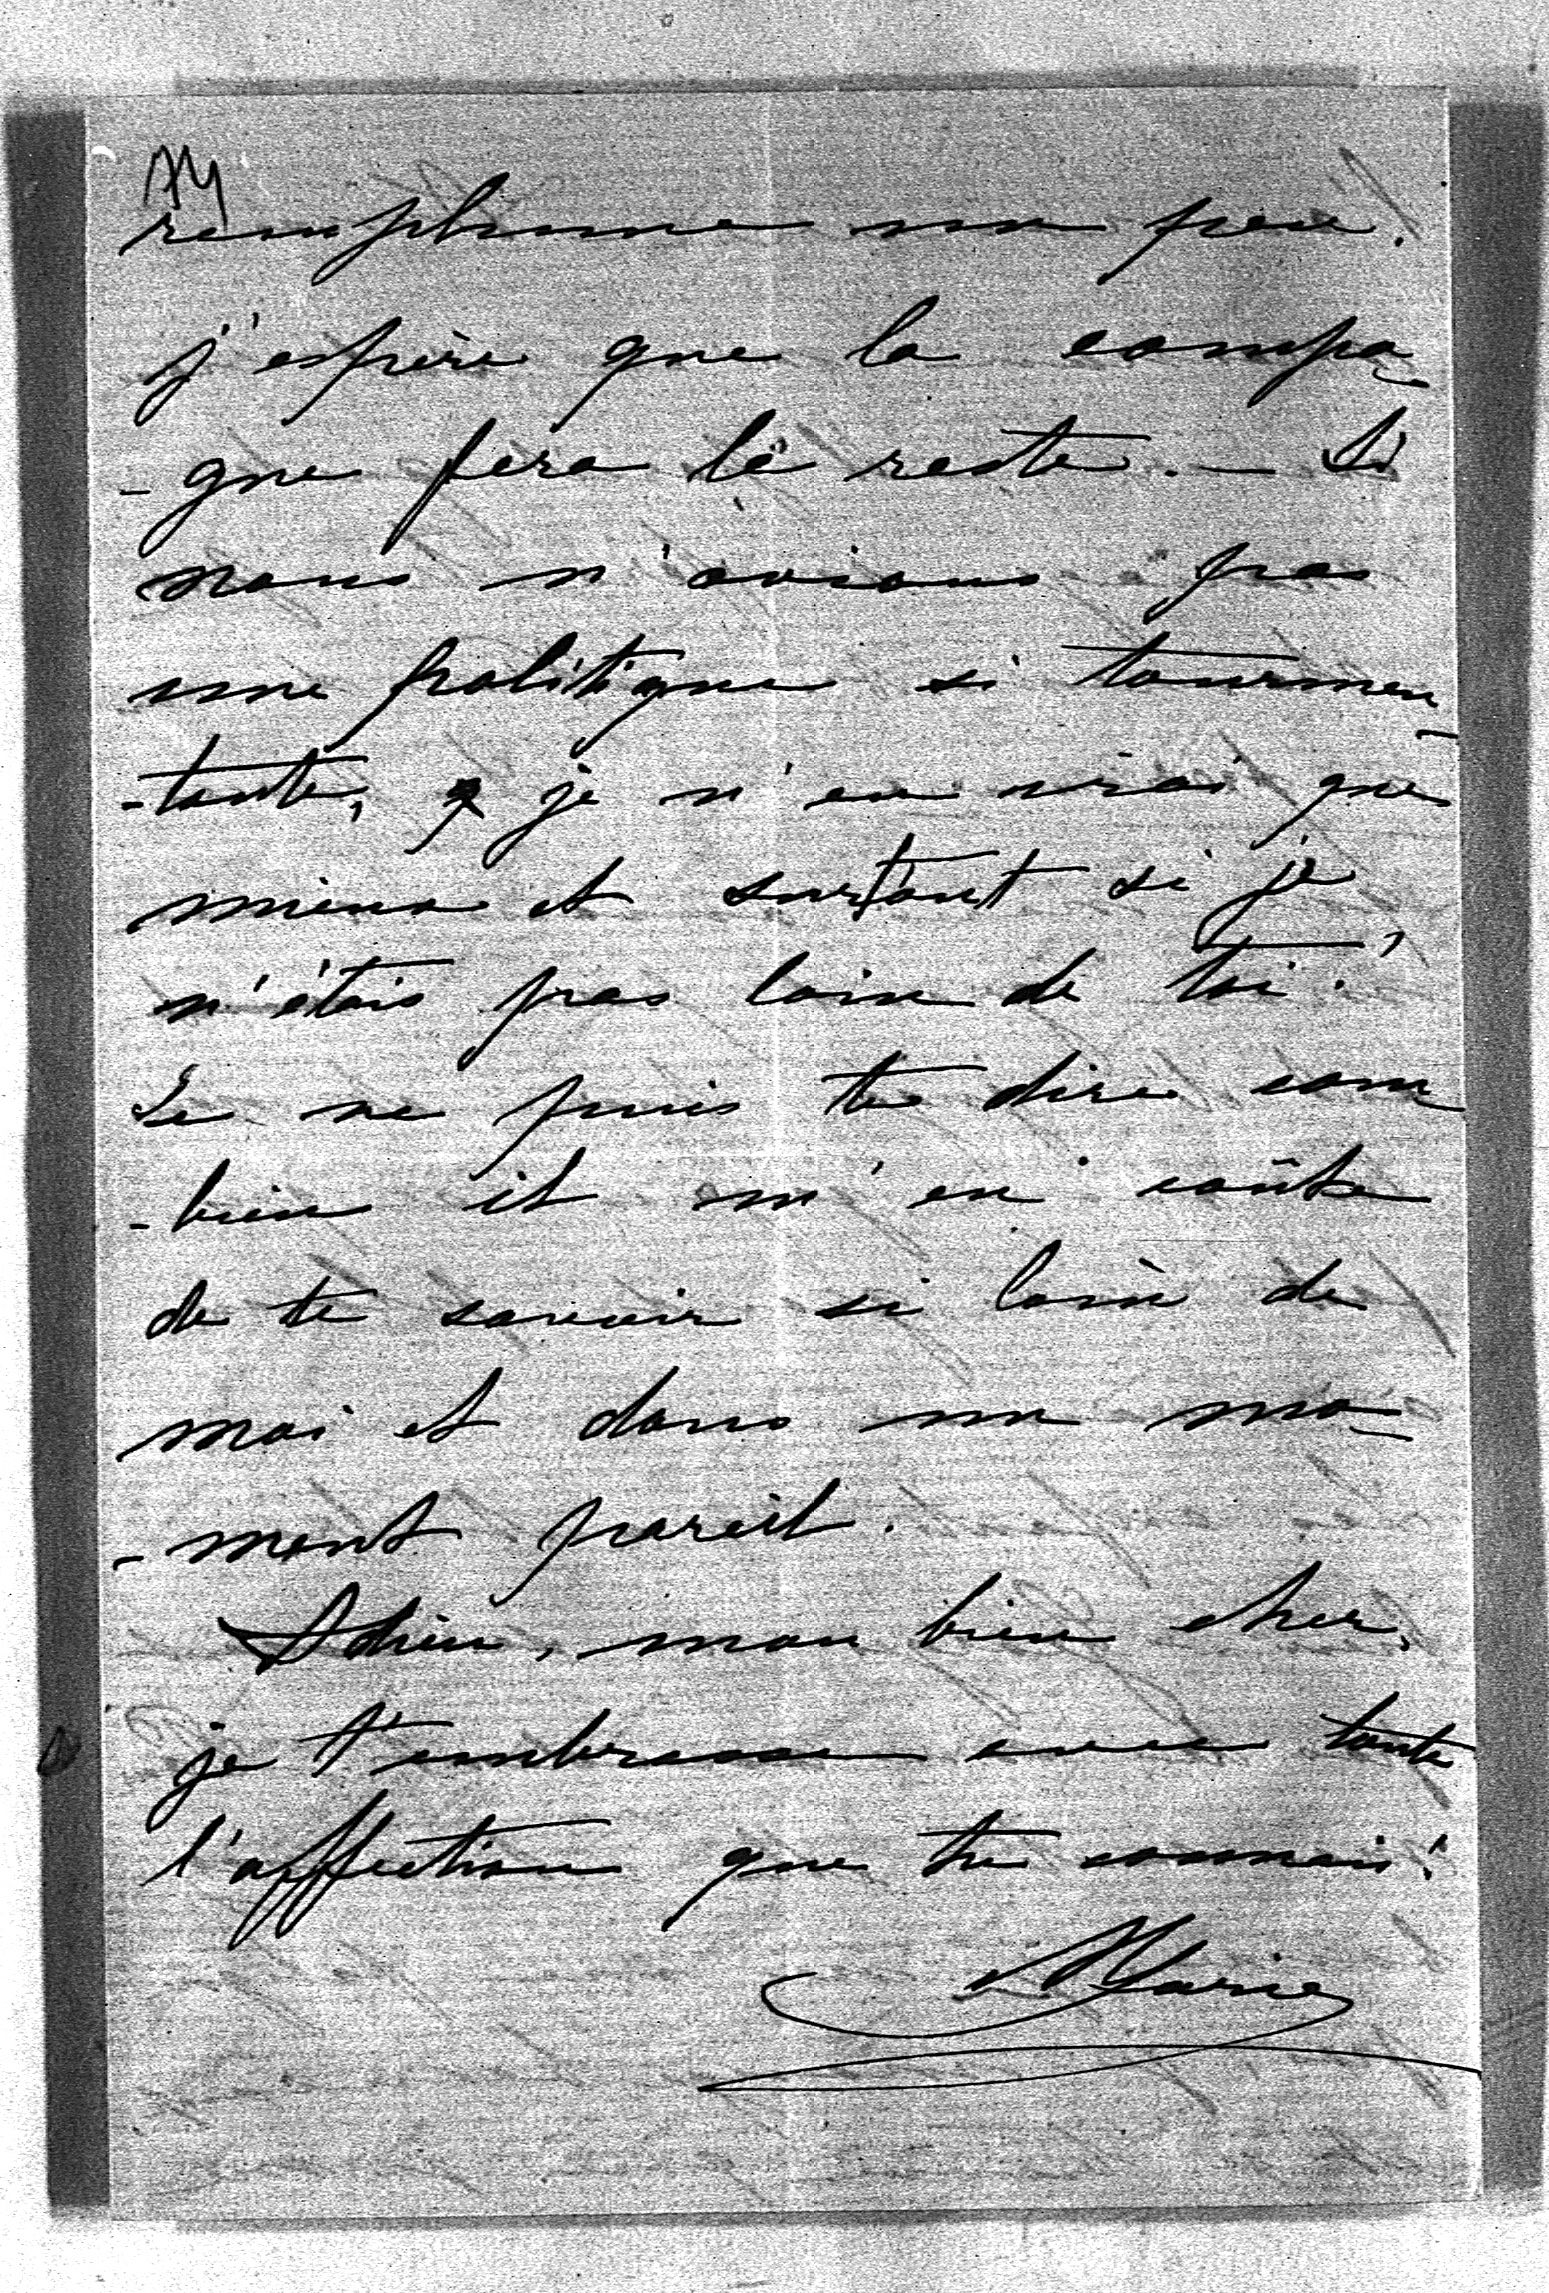 remplumer un peu.
j'espère que la campa-
-gne fera le reste. — Si
nous n'avions pas
une politique si tourmen-
-tante, je n'en irai que
mieux et surtout si je
n'étais pas loin de toi.
Je ne puis te dire com
-bien il m'en coûte
de te savoir si loin de
moi et dans un mo-
-ment pareil.
Adieu, mon bien cher,
je t'embrasse avec toute
l'affection que tu connais.
Marie